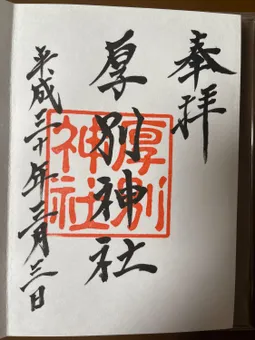 奉拝
厚別神社
厚別
神社
平成三十年三月三日